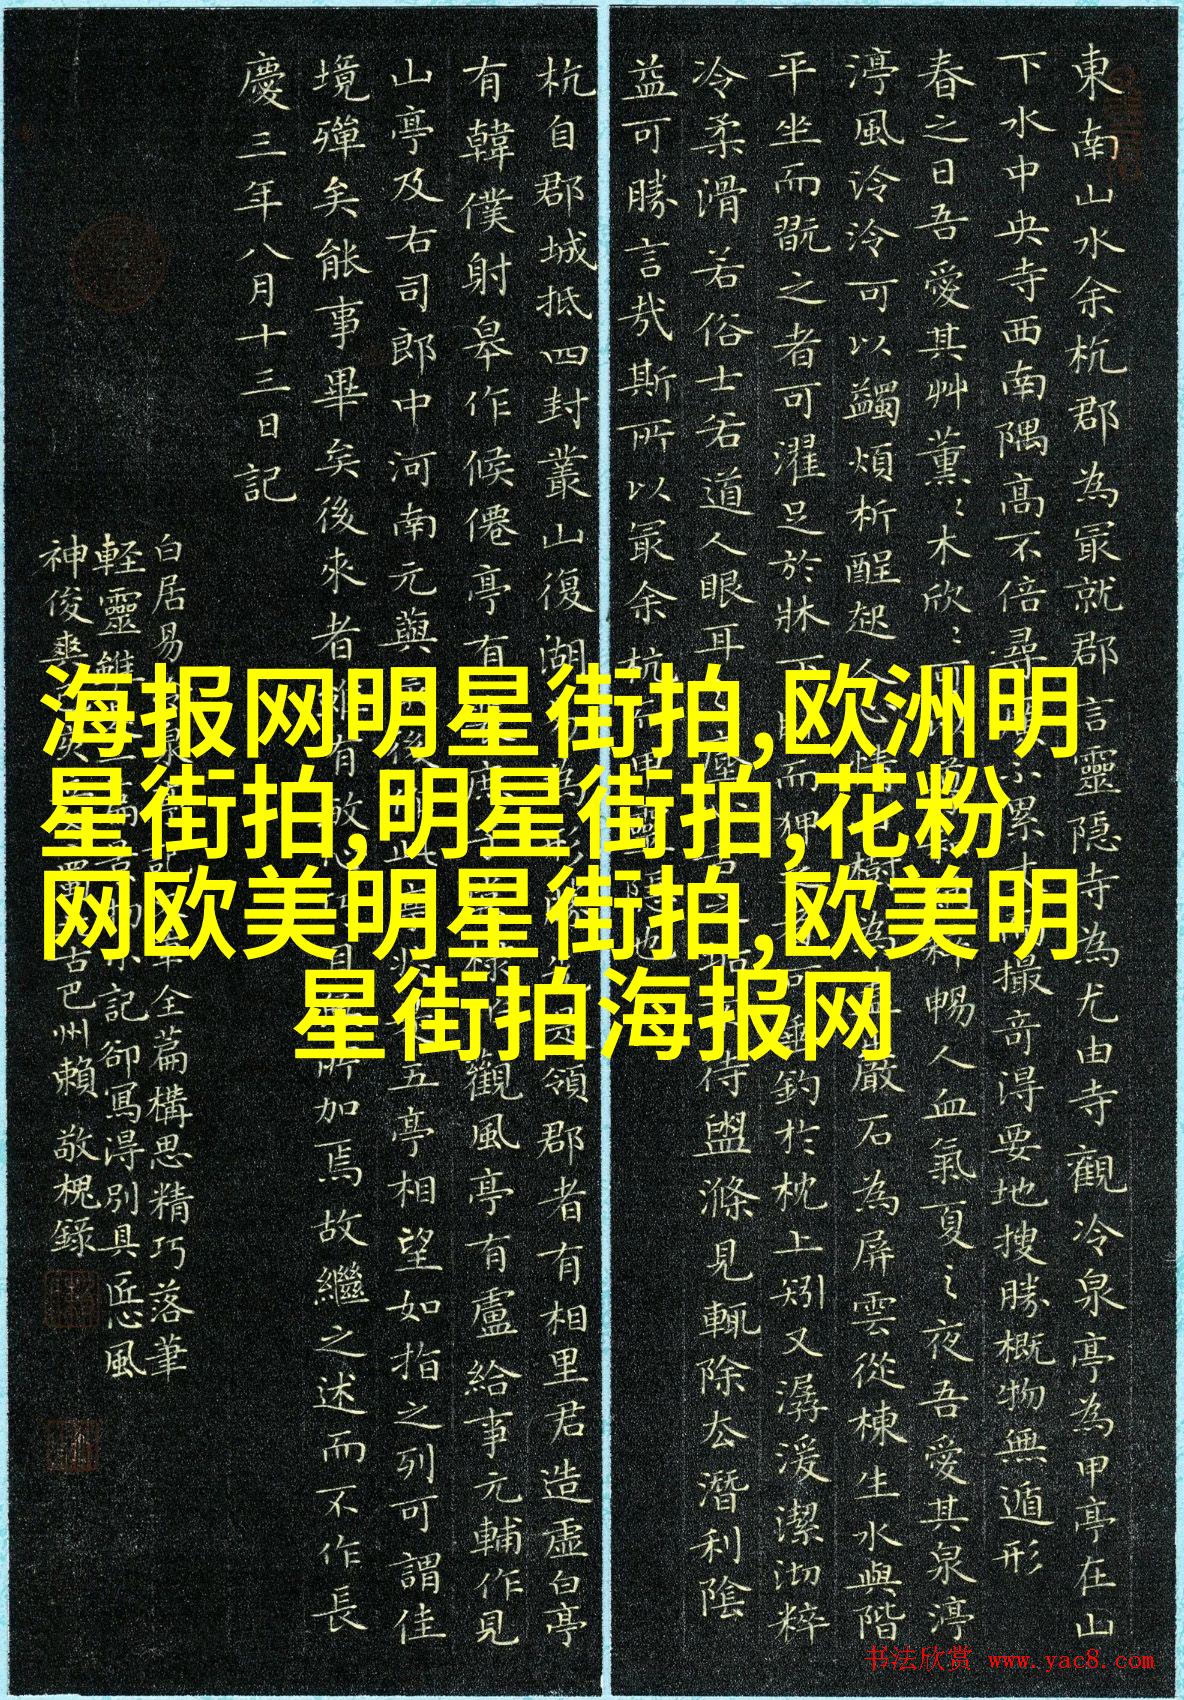 東南山水余杭郡為冣就郡言靈隐寺為尤由寺觀冷泉亭為甲亭在山
下水中央寺西南隅高不倍尋累撮竒得要地搜勝概物無遁形
春之日吾愛其艸薰〻木欣〻暢人血氣夏之夜吾愛其泉渟
渟風泠泠可以蠲煩析酲起人心情樹為嚴石為屏雲從棟生水與階
平坐而翫之者可濯足於牀下而狎釣於枕上矧又潺湲潔沏粹
冷柔滑若俗士若道人眼耳待盥滌見輒除去潛利陰
益可勝言哉斯所以冣余杭也
杭自郡城抵四封叢山復湖領郡者有相里君造虛白亭
有韓僕射皋作候僊亭有觀風亭有盧給事元輔作見
山亭及右司郎中河南元藇後五亭相望如指之列可謂佳
境殫矣能事畢矣後來者有敬加焉故繼之述而不作長
慶三年八月十三日記
白居易泉全篇構思精巧落筆
軽靈記卻寫得別具匠心風
神俊爽古巴州賴敬槐錄
海报网明星街拍,欧洲明
星街拍,明星街拍,花粉
网欧美明星街拍,欧美明
星街拍海报网
书法欣赏 www.yac8.com